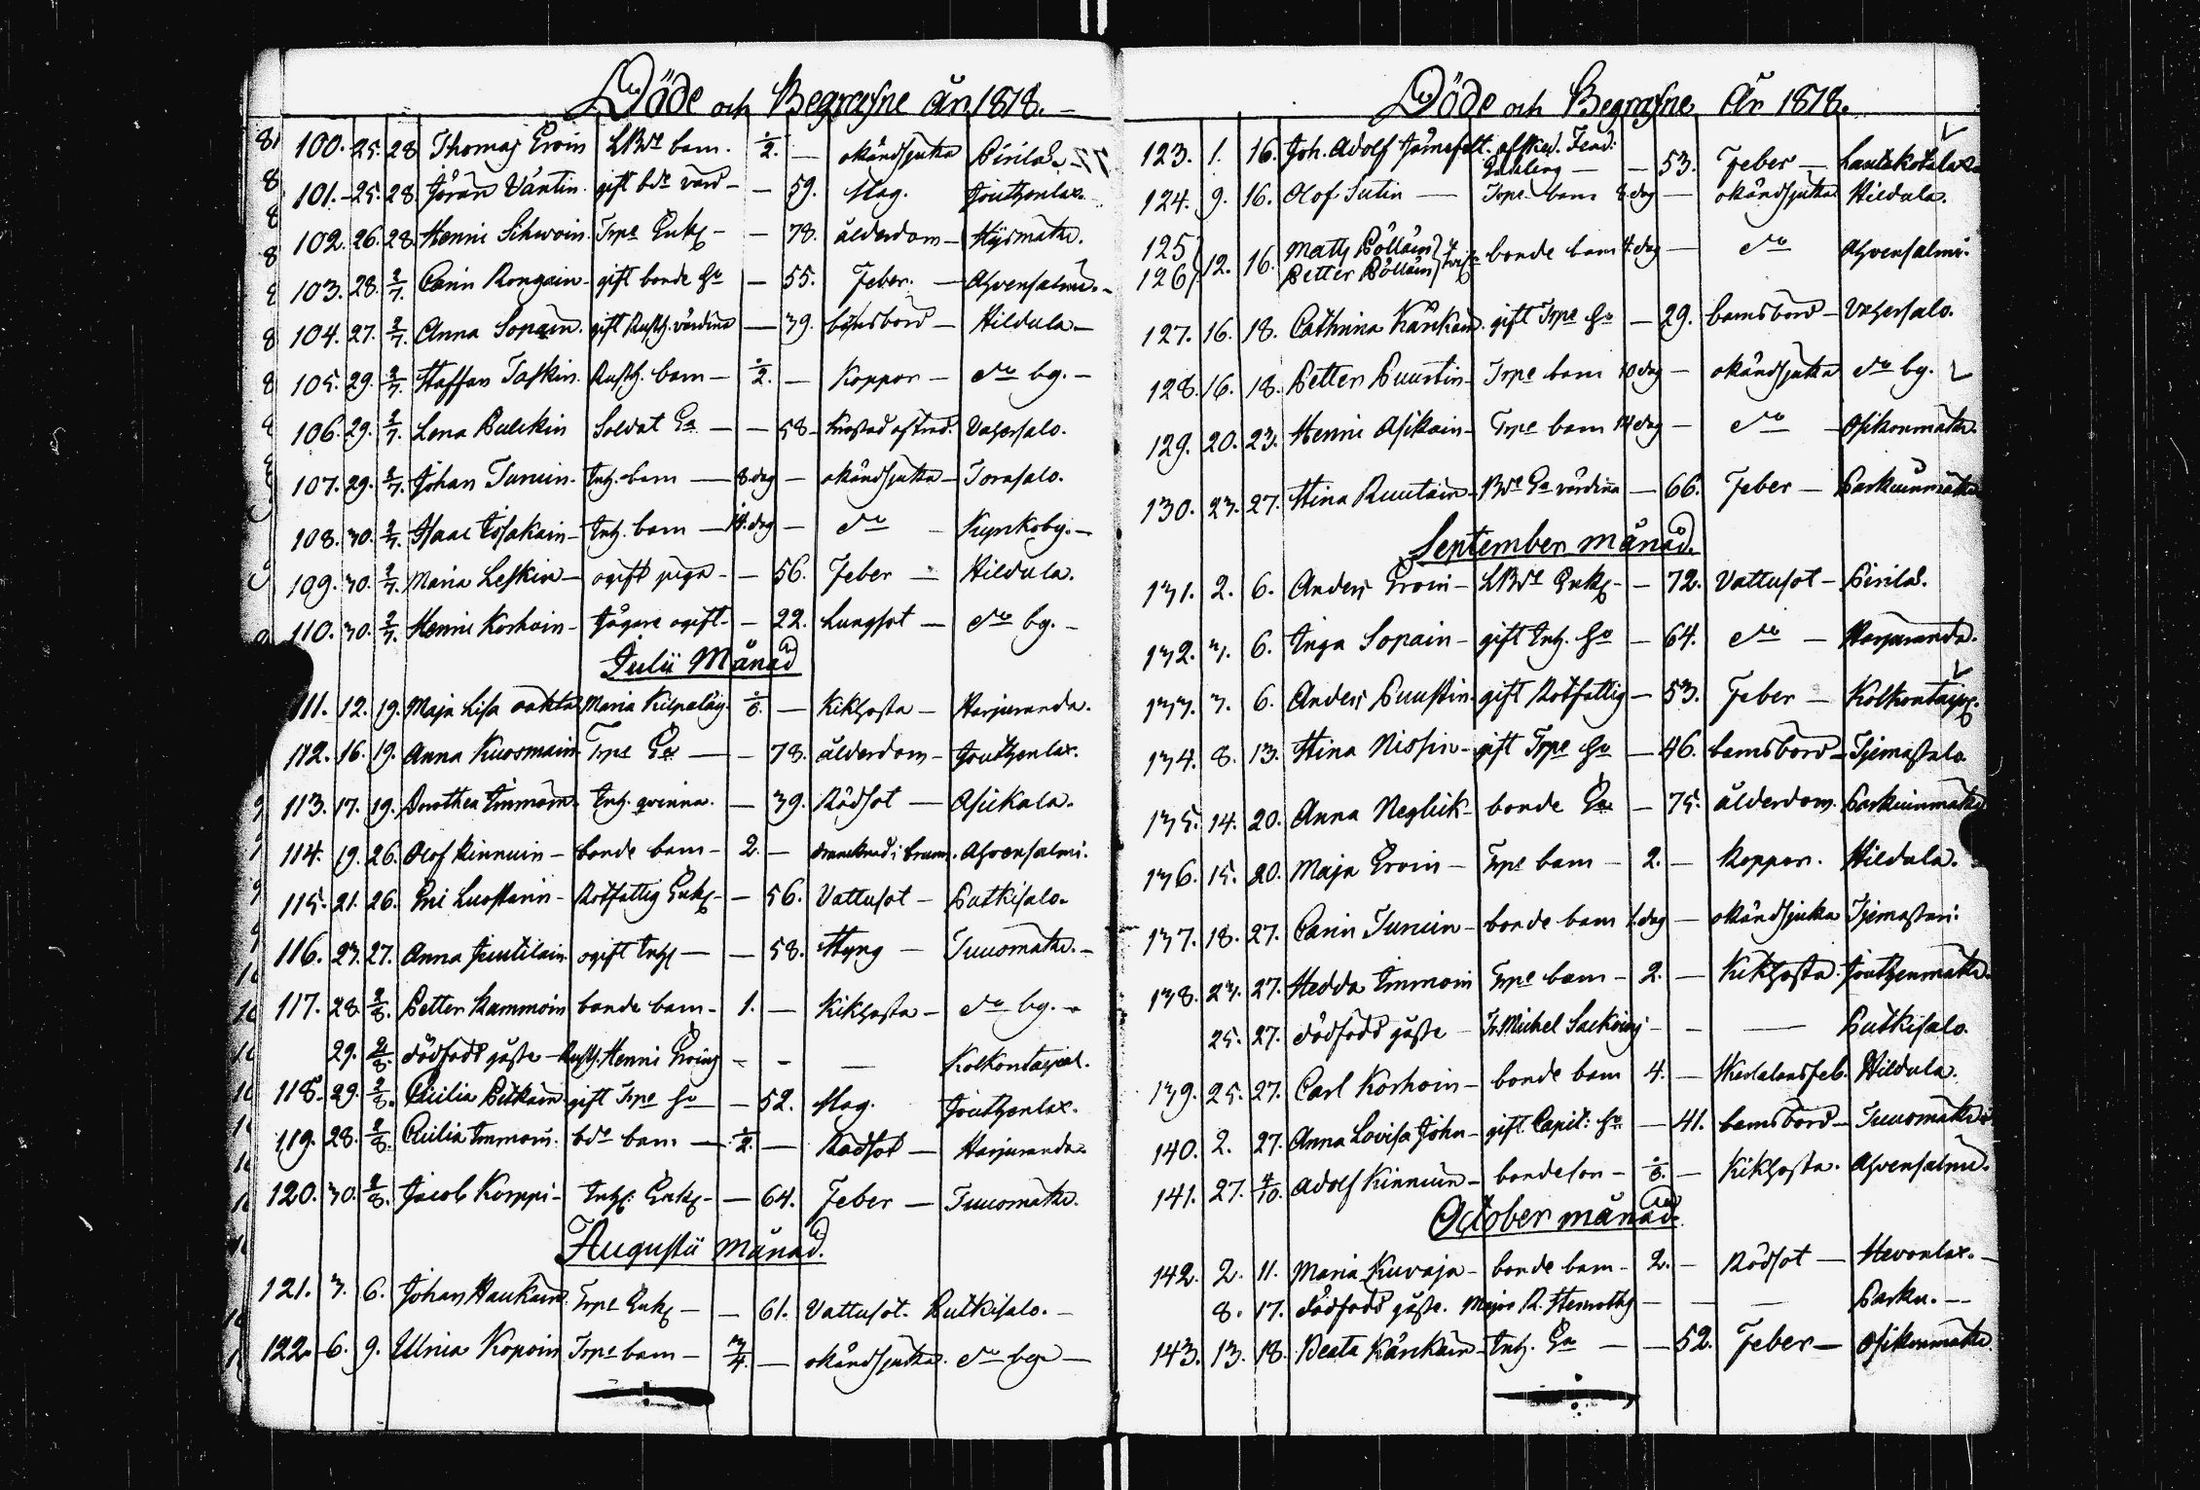 Döde och Begrafne År 1818.
100. 25. 28 Thomas Ervin LBde barn. 1/2. — okänd sjukd Pirilä
101. 25. 28. Jöran Väntin gift bde värd — 59. Slag. Joutzenlax.
102. 26. 28. Henric Sihvoin Trpe Enkl — 78. ålderdom — Hyrmäki.
103. 28. 2/7. Carin Rongain gift bonde Hu — 55. Feber. — Ahvensalmi.
104. 27. 2/7. Anna Sopain. gift Rusth. värdina — 39. barnsbörd — Hildula —
105. 29. 2/7. Staffan Taskin. Rusth. barn — 1/2. — Koppor — do by. —
106. 29. 2/7. Lena Pulckin Soldat Ea — 58. Vahersalo.
107. 29. 2/7. Johan Turuin. Inh. barn — 8 dag — okänd sjukd — Torasalo.
108. 30. 2/7. Isaac Tossakain — Inh. barn — 14 dag — do —
109. 30. 2/7. Maria Leskin — ogift piga — 56. Feber — Hildula.
110. 30. 2/7. Henric Korhoin — Jägare ogift — 22. Lungsot — do by. —
Julii Månad
111. 12. 19. Maja Lisa oäkta Maria Kilpaläin 1/8. — Kikhosta — Harjuranda.
112. 16. 19. Anna Kuosmain Trpe Ea — 78. ålderdom — Joutzenlax.
113. 17. 19. Dorothea Immoin. Inh. qvinna. — 39. Rödsot — Asickala.
114. 19. 26. Olof Kinnuin — bonde barn — 2. — dräncknad i brunn. Ahvensalmi.
115. 21. 26. Eric Luostarin — Rotfattig Enkl — 56. Vattusot — Putkisalo.
116. 23. 27. Anna Juutilain ogift Inh — 58. Styng — Tuuomäki. —
117. 28. 2/8. Petter Kammoin bonde barn — 1. — Kikhosta — do by. —
29. 2/8. dödfödd gåsse — Rusth. Henric Ervins — — Kolkontaipal.
118. 29. 2/8. Cicilia Pitkäin gift Trpe Hu — 52. Slag. Joutzenlax.
119. 28. 2/8. Cicilia Immoin. bde barn — 1/2. — Rödsot — Harjuranda.
120. 30. 2/8. Jacob Korppi — Inh. Enkl — 64. Feber — Tuuomäki.
Augustii månad.
121. 3. 6. Johan Haukain Trpe Enkl — 61. Vattusot. Putkisalo. —
122. 6. 9. Ulrica Kopoin Trpe barn — 3/4. — okänd sjukd. do by —
Döde och Begrafne År 1818.
123. 1. 16. Joh. Adolf Järnefelt. afsked. — 53. Feber —
124. 9. 16. Olof Sutin — Trpe barn 8 dag — okänd sjukd Hildula.
125 126 12. 16. Mats Pöllöin Petter Pöllöin bonde barn 4 dag — do Ahvensalmi.
127. 16. 18. Cathrina Känkäin gift Trpe Hu — 29. barnsbörd — Vahersalo.
128. 16. 18. Petter Puustin — Trpe barn 10 dag — okänd sjukd do by.
129. 20. 23. Henric Asikain — Trpe barn 14 dag — do — Asikonmäki.
130. 23. 27. Stina Ruutain — Bde Ea värdina — 66. Feber — Parkuinmäki
September månad.
131. 2. 6. Anders Ervin — LBde Enkl — 72. Vattusot — Pirilä.
132. 3. 6. Inga Sopain — gift Inh. Hu — 64. do — Harjuranda.
133. 3. 6. Anders Puustin — gift Rotfattig — 53. Feber — Kolkontaip.
134. 8. 13. Stina Nissin — gift Trpe Hu — 46. barnsbörd — Tjemassalo
135. 14. 20. Anna Neglick — bonde Ea — 75. ålderdom. Parkuinmäki
136. 15. 20. Maja Ervin — Trpe barn — 2. — Koppor. Hildula.
137. 18. 27. Carin Turuin — bonde barn 1. dag — okänd sjuka
138. 23. 27. Hedda Immoin Trpe barn — 2. — Kikhosta. Joutzenmäki.
25. 27. dödfödd gåsse — Michel — — Putkisalo.
139. 25. 27. Carl Korhoin — bonde barn 4. — Skarlakansfeb. Hildula.
140. 2. 27. Anna Lovisa John — gift Capit: Hu — 41. barnsbörd — Tuuomäki
141. 27. 4/10. Adolf Kinnuin — bondeson — 1/8. — Kikhosta. Ahvensalmi.
October månad.
142. 2. 11. Maria Kuvaja — bonde barn — 2. — Rödsot — Hevonlax. —
8. 17. dödfödd gåsse. Major — — Parku. —
143. 13. 18. Beata Känkäin — Inh. Ea — 52. Feber — Asikonmäki